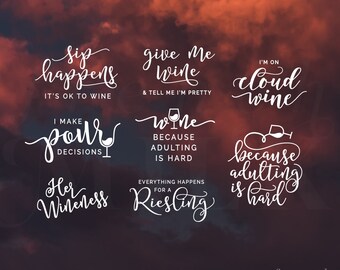 sip
happens
IT'S OK TO WINE
give me
wine
& TELL ME I'M PRETTY
I'M ON
cloud
wine
I MAKE
pour
DECISIONS
wine
BECAUSE
ADULTING
IS HARD
because
adulting
is hard
Her
Wineness
EVERYTHING HAPPENS
FOR A
Riesling